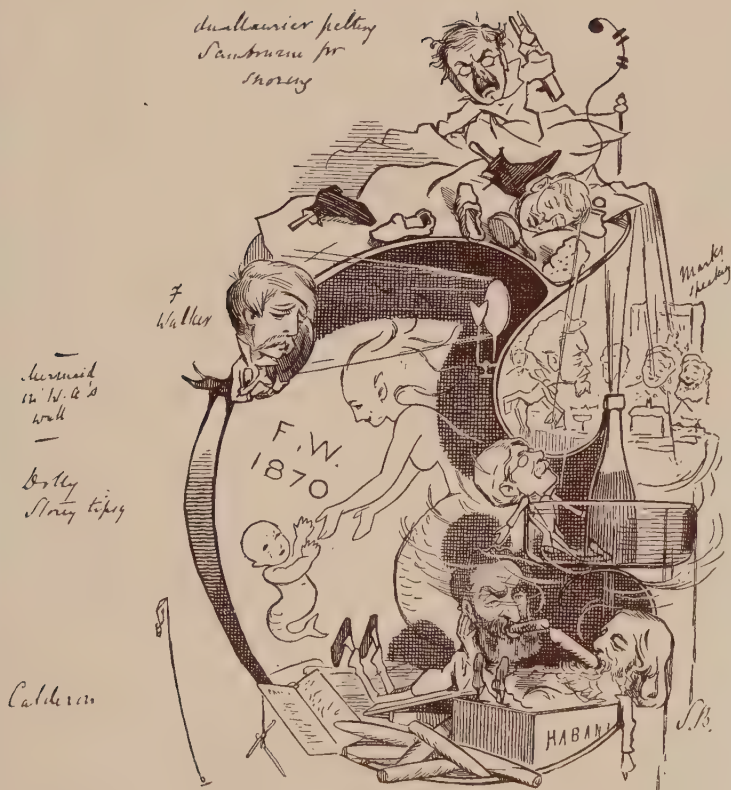 duMaurier pelting
Sambourne for
snoring
F
Walker
Marks
speaking
Mermaid
in W.A's
well
F.W.
1870
Dolly
Storey tipsy
Calderon
HABANA
S.B.